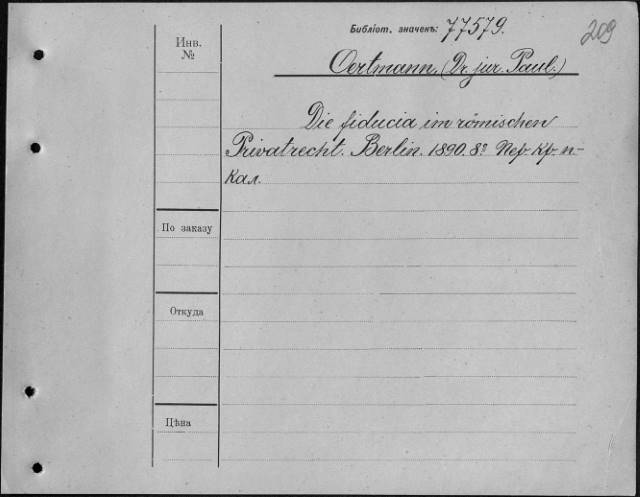 Библіот. значекъ: 77579.
209
Инв.
№
Oertmann, (Dr. jur. Paul.)
Die fiducia im römischen
Privatrecht. Berlin. 1890. 8º
кал.
По заказу
Откуда
Цѣна